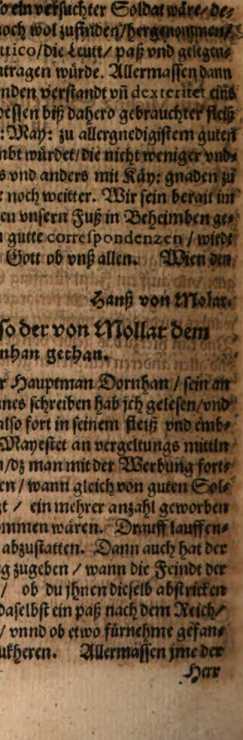 so ein versuchter Soldat wäre/ de-
noch wol zufinden/ hergenommen/
uico/ die Leutt/ paß vnd gelegen-
tragen würde. Allermassen dann
nden verstandt vñ dexteritet eüs
dessen biß dahero gebrauchter fleiß
: May: zu allergnedigistem guten
nbt würdet/ die nicht weniger vnd-
s vnd anders mit Käy: gnaden zu
t noch weitter. Wir sein berait im
en vnsern Fuß in Beheimben ge-
n gutte correspondenzen / wirdt
Gott ob vnß allen. Wien den
Hanß von Molar.
so der von Mollar dem
nhan gethan.
r Hauptman Dornhan / sein an
nes schreiben hab jch gelesen/ vnd
also fort in seinem fleiß vnd emb-
Mayestet an vergeltungs mittln
n/ dz man mit der Werbung fort-
en / wann gleich von guten Sol-
zt / ein mehrer anzahl geworben
ommen wären. Drauff lauffen-
abzustatten. Dann auch hat der
g zugeben / wann die Feindt der
/ ob du jhnen dieselb abstricken
daselbst ein paß nach dem Reich/
/ vnnd ob etwo fürnehme gefan-
ukheren. Allermassen jme der
Herr